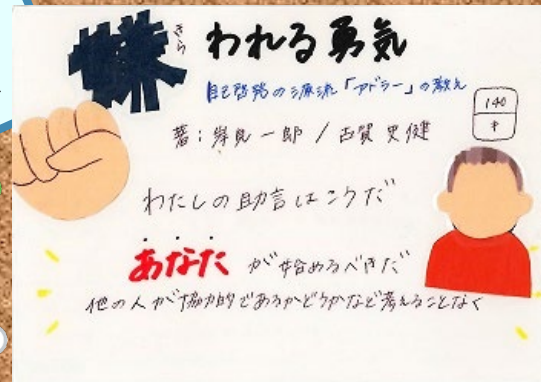 嫌われる勇気
きら
自己啓発の源流「アドラー」の教え
著：岸見一郎／古賀史健
140
キ
わたしの助言はこうだ
あなたが始めるべきだ
他の人が協力的であるかどうかなど考えることなく